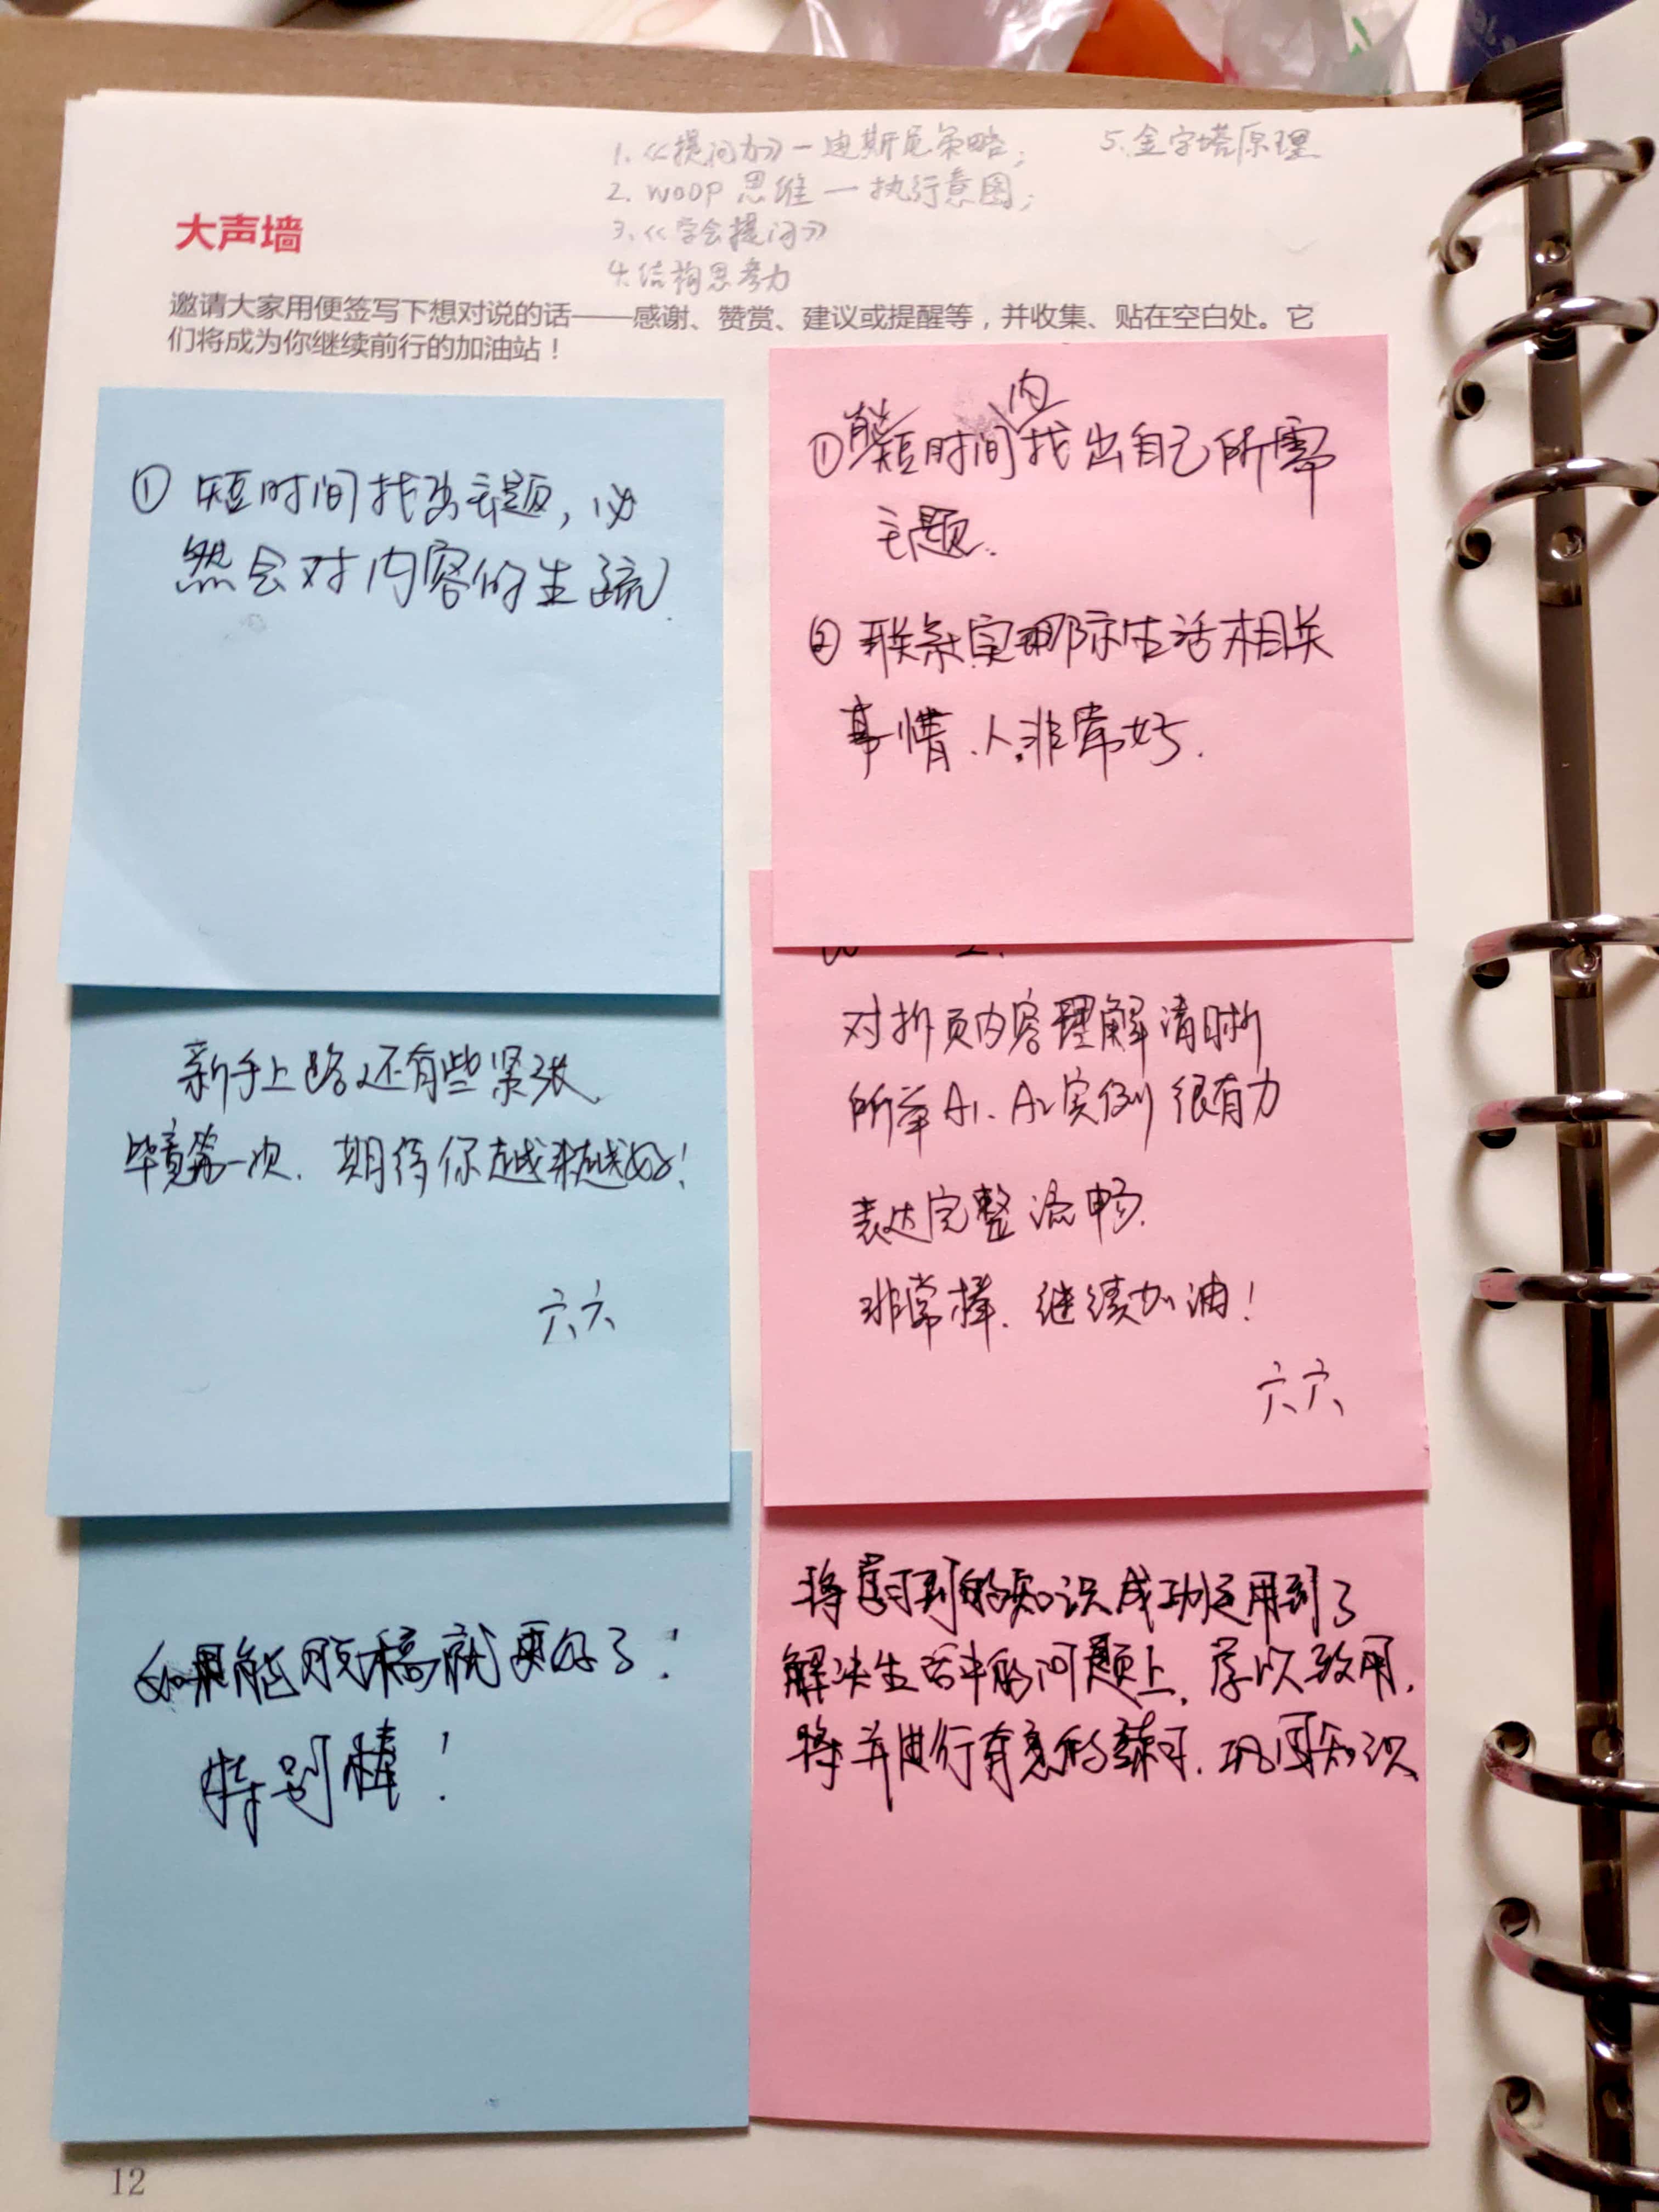 1.《提问力》—迪斯尼策略;
5.金字塔原理
2. WOOP 思维 — 执行意图;
3.《学会提问》
4.结构思考力
大声墙
邀请大家用便签写下想对说的话——感谢、赞赏、建议或提醒等，并收集、贴在空白处。它
们将成为你继续前行的加油站！
① 短时间找出主题, 必
然会对内容的生疏
①能短时间内找出自己所需
主题.
② 联系实际生活相关
事情、人.非常好.
新手上路,还有些紧张
毕竟第一次. 期待你越来越好!
六六
对折页内容理解清晰
所举A1、A2实例很有力
表达完整流畅.
非常棒. 继续加油!
六六
如果能脱稿就更好了!
特别棒!
将学习到的知识成功运用到了
解决生活中的问题上, 学以致用,
将并进行有意的练习, 巩固知识
12